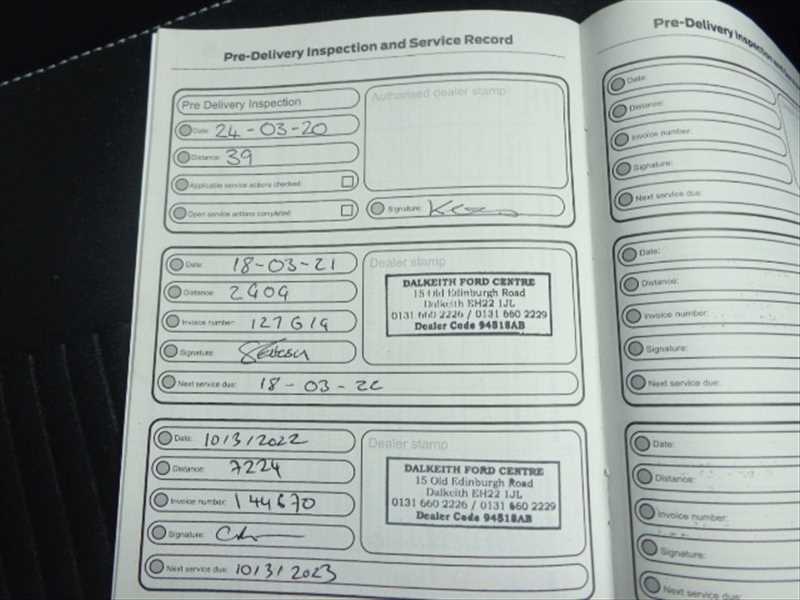 Pre-Delivery Inspection and Service Record
Pre Delivery Inspection
Authorised dealer stamp
Date: 24-03-20
Distance: 39
Applicable service actions checked
Open service actions completed
Signature:
Date: 18-03-21
Dealer stamp
Distance: 2909
DALKEITH FORD CENTRE
15 Old Edinburgh Road
Dalkeith EH22 1JL
0131 660 2226 / 0131 660 2229
Dealer Code 94518AB
Invoice number: 127619
Signature:
Next service due: 18-03-22
Date: 10/3/2022
Dealer stamp
Distance: 7224
DALKEITH FORD CENTRE
15 Old Edinburgh Road
Dalkeith EH22 1JL
0131 660 2226 / 0131 660 2229
Dealer Code 94518AB
Invoice number: 144670
Signature:
Next service due: 10/3/2023
Pre-Delivery Inspection and
Date:
Distance:
Invoice number:
Signature:
Next service due:
Date:
Distance:
Invoice number:
Signature:
Next service due:
Date:
Distance:
Invoice number:
Signature:
Next service due: